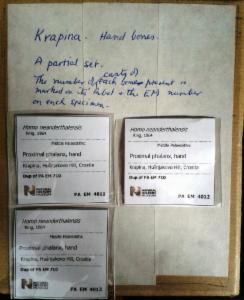 Krapina. Hand bones.
A partial set.
(casts of)
The number of each bone present is
marked on its label + the EM number
on each specimen.
Homo neanderthalensis
King, 1864
Middle Palaeolithic
Proximal phalanx, hand
Krapina, Hušnjakovo Hill, Croatia
Dup of PA EM 710
NATURAL
HISTORY
MUSEUM
PA EM 4012
Homo neanderthalensis
King, 1864
Middle Palaeolithic
Proximal phalanx, hand
Krapina, Hušnjakovo Hill, Croatia
Dup of PA EM 710
NATURAL
HISTORY
MUSEUM
PA EM 4012
Homo neanderthalensis
King, 1864
Middle Palaeolithic
Proximal phalanx, hand
Krapina, Hušnjakovo Hill, Croatia
Dup of PA EM 710
PA EM 4012